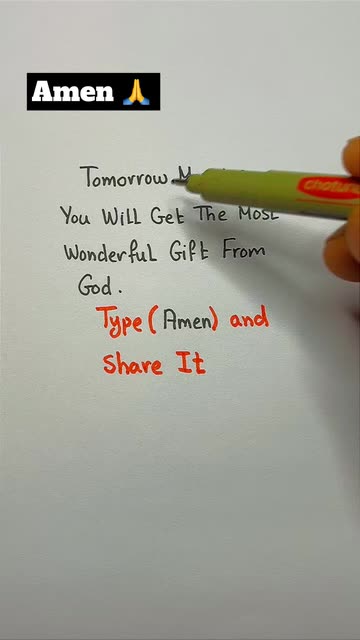 Amen 🙏
Tomorrow
You Will Get The Most
Wonderful Gift From
God.
Type (Amen) and
Share It